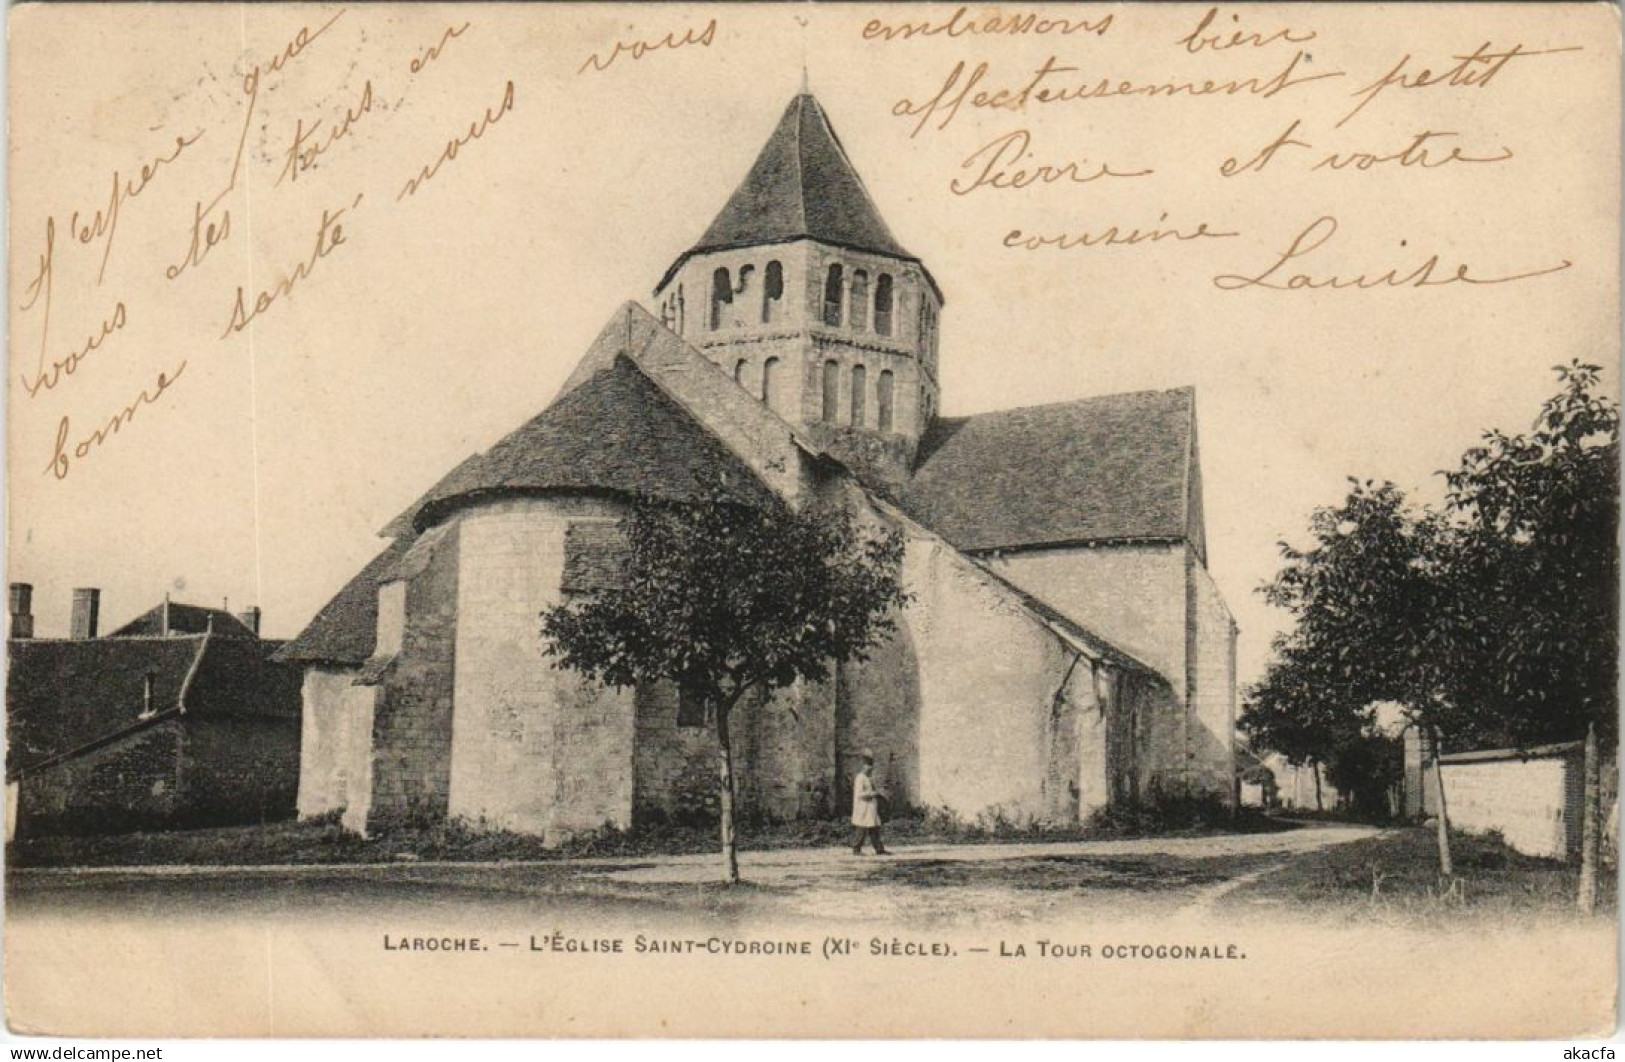 J'espère que
vous êtes tous en
bonne santé nous vous
embrassons bien
affecteusement petit
Pierre et votre
cousine
Louise
LAROCHE. — L'ÉGLISE SAINT-CYDROINE (XIe SIÈCLE). — LA TOUR OCTOGONALE.
delcampe.net
akacfa